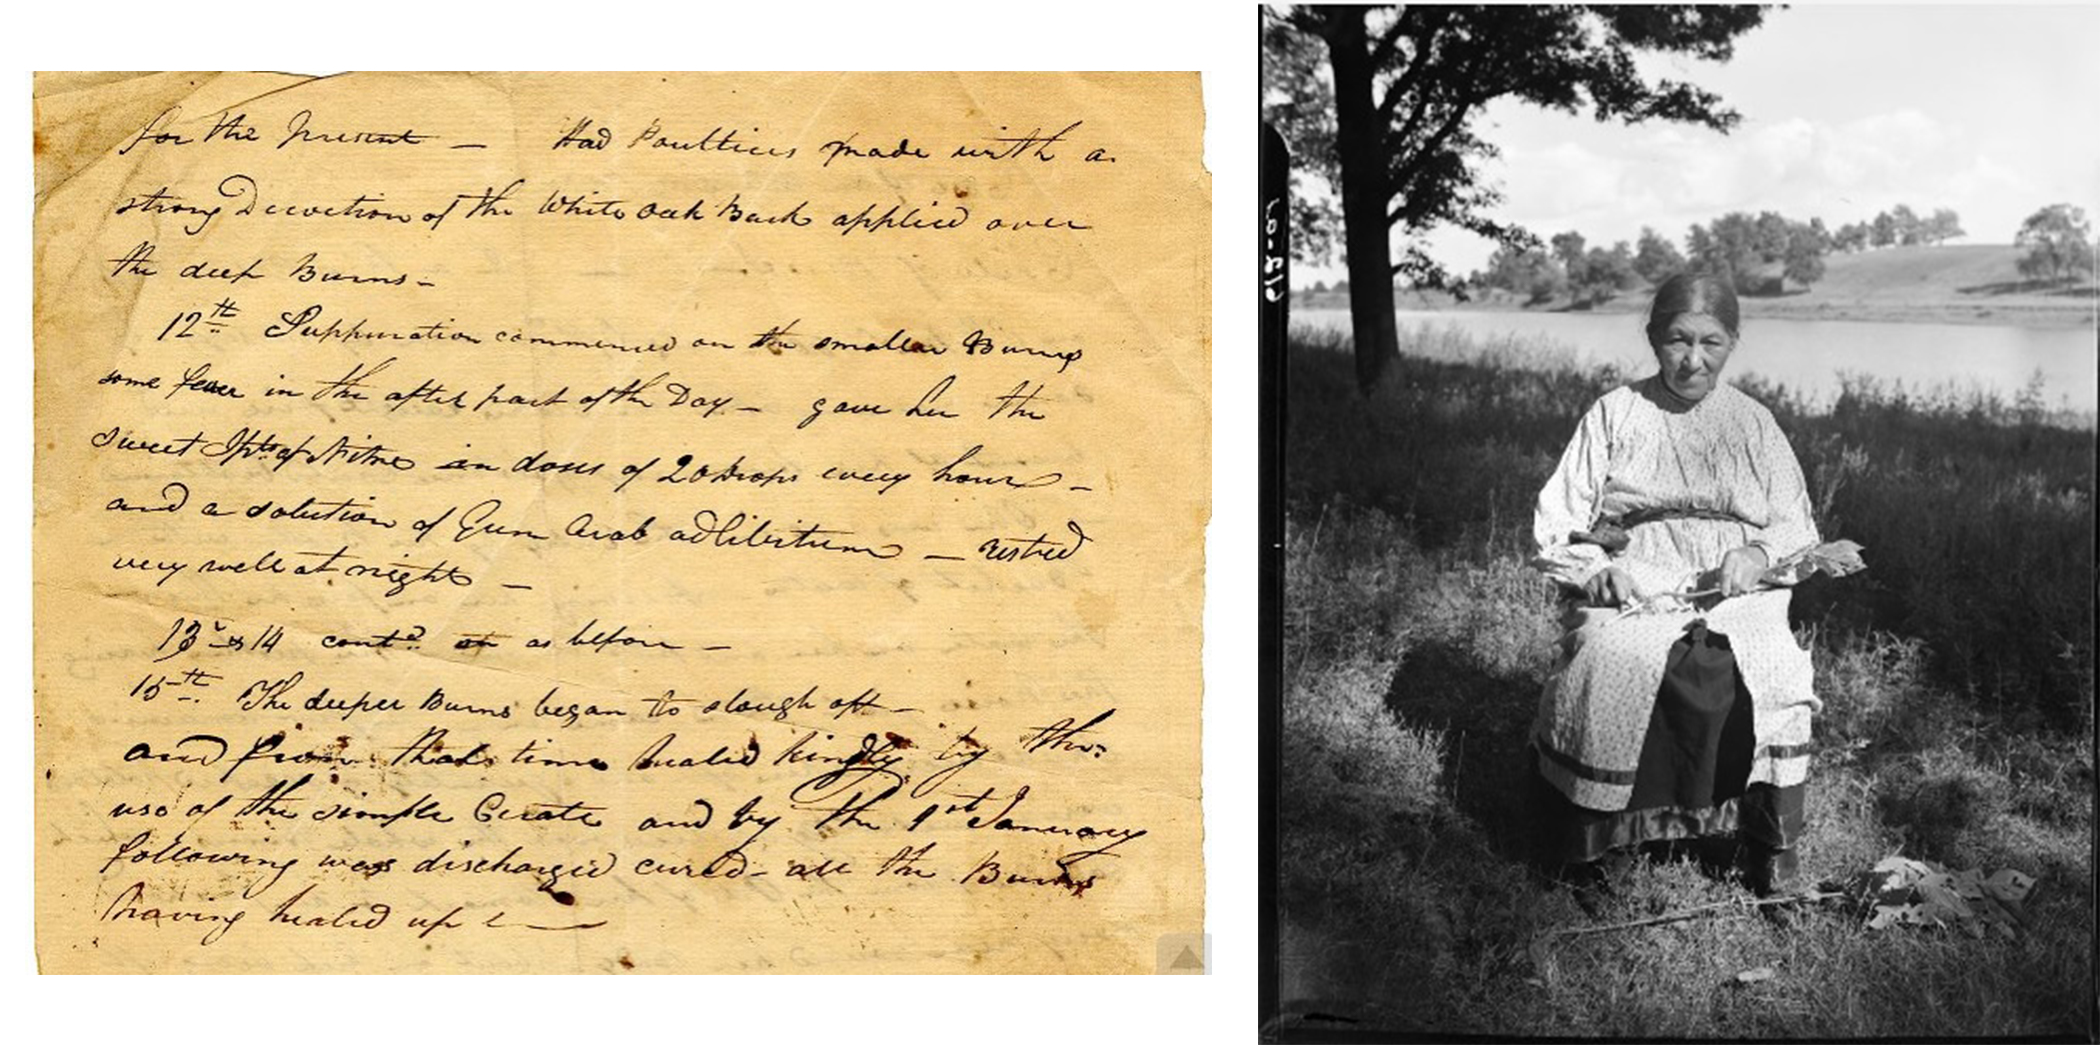 for the present — Had Poultices made with a
strong Decoction of the White Oak Bark applied over
the deep Burns –
12th Suppuration commenced on the smaller Burns
some fever in the after part of the Day – gave her the
sweet Spts of Nitre in doses of 20 Drops every hour –
and a solution of Gum Arab adlibitum – rested
very well at night –
13 & 14 contd as before –
15th The deeper Burns began to slough off –
and from that time healed kindly by the
use of the simple Cerate and by the 1st January
following was discharged cured – all the Burns
having healed up
612-01